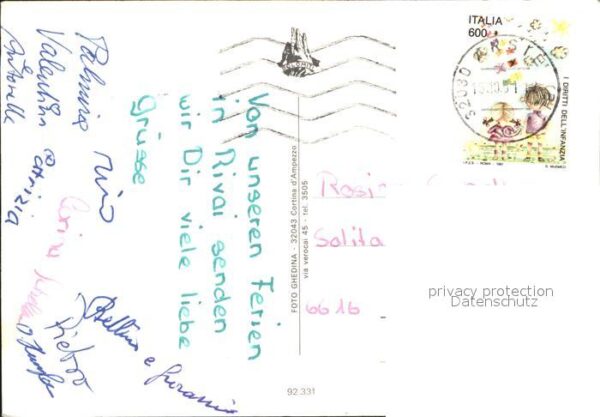 Von unseren Ferien
in Rivai senden
wir Dir viele liebe
Grüsse
Palmira Nino
Valentina Patrizia
Antonella
Pietro
Bellina e
Rosi
Solita
6616
ITALIA
600
I DIRITTI DELL'INFANZIA
I.P.Z.S. - ROMA - 1991
32030
FOTO GHEDINA - 32043 Cortina d'Ampezzo
via verocai 45 - tel. 3505
92.331
privacy protection
Datenschutz